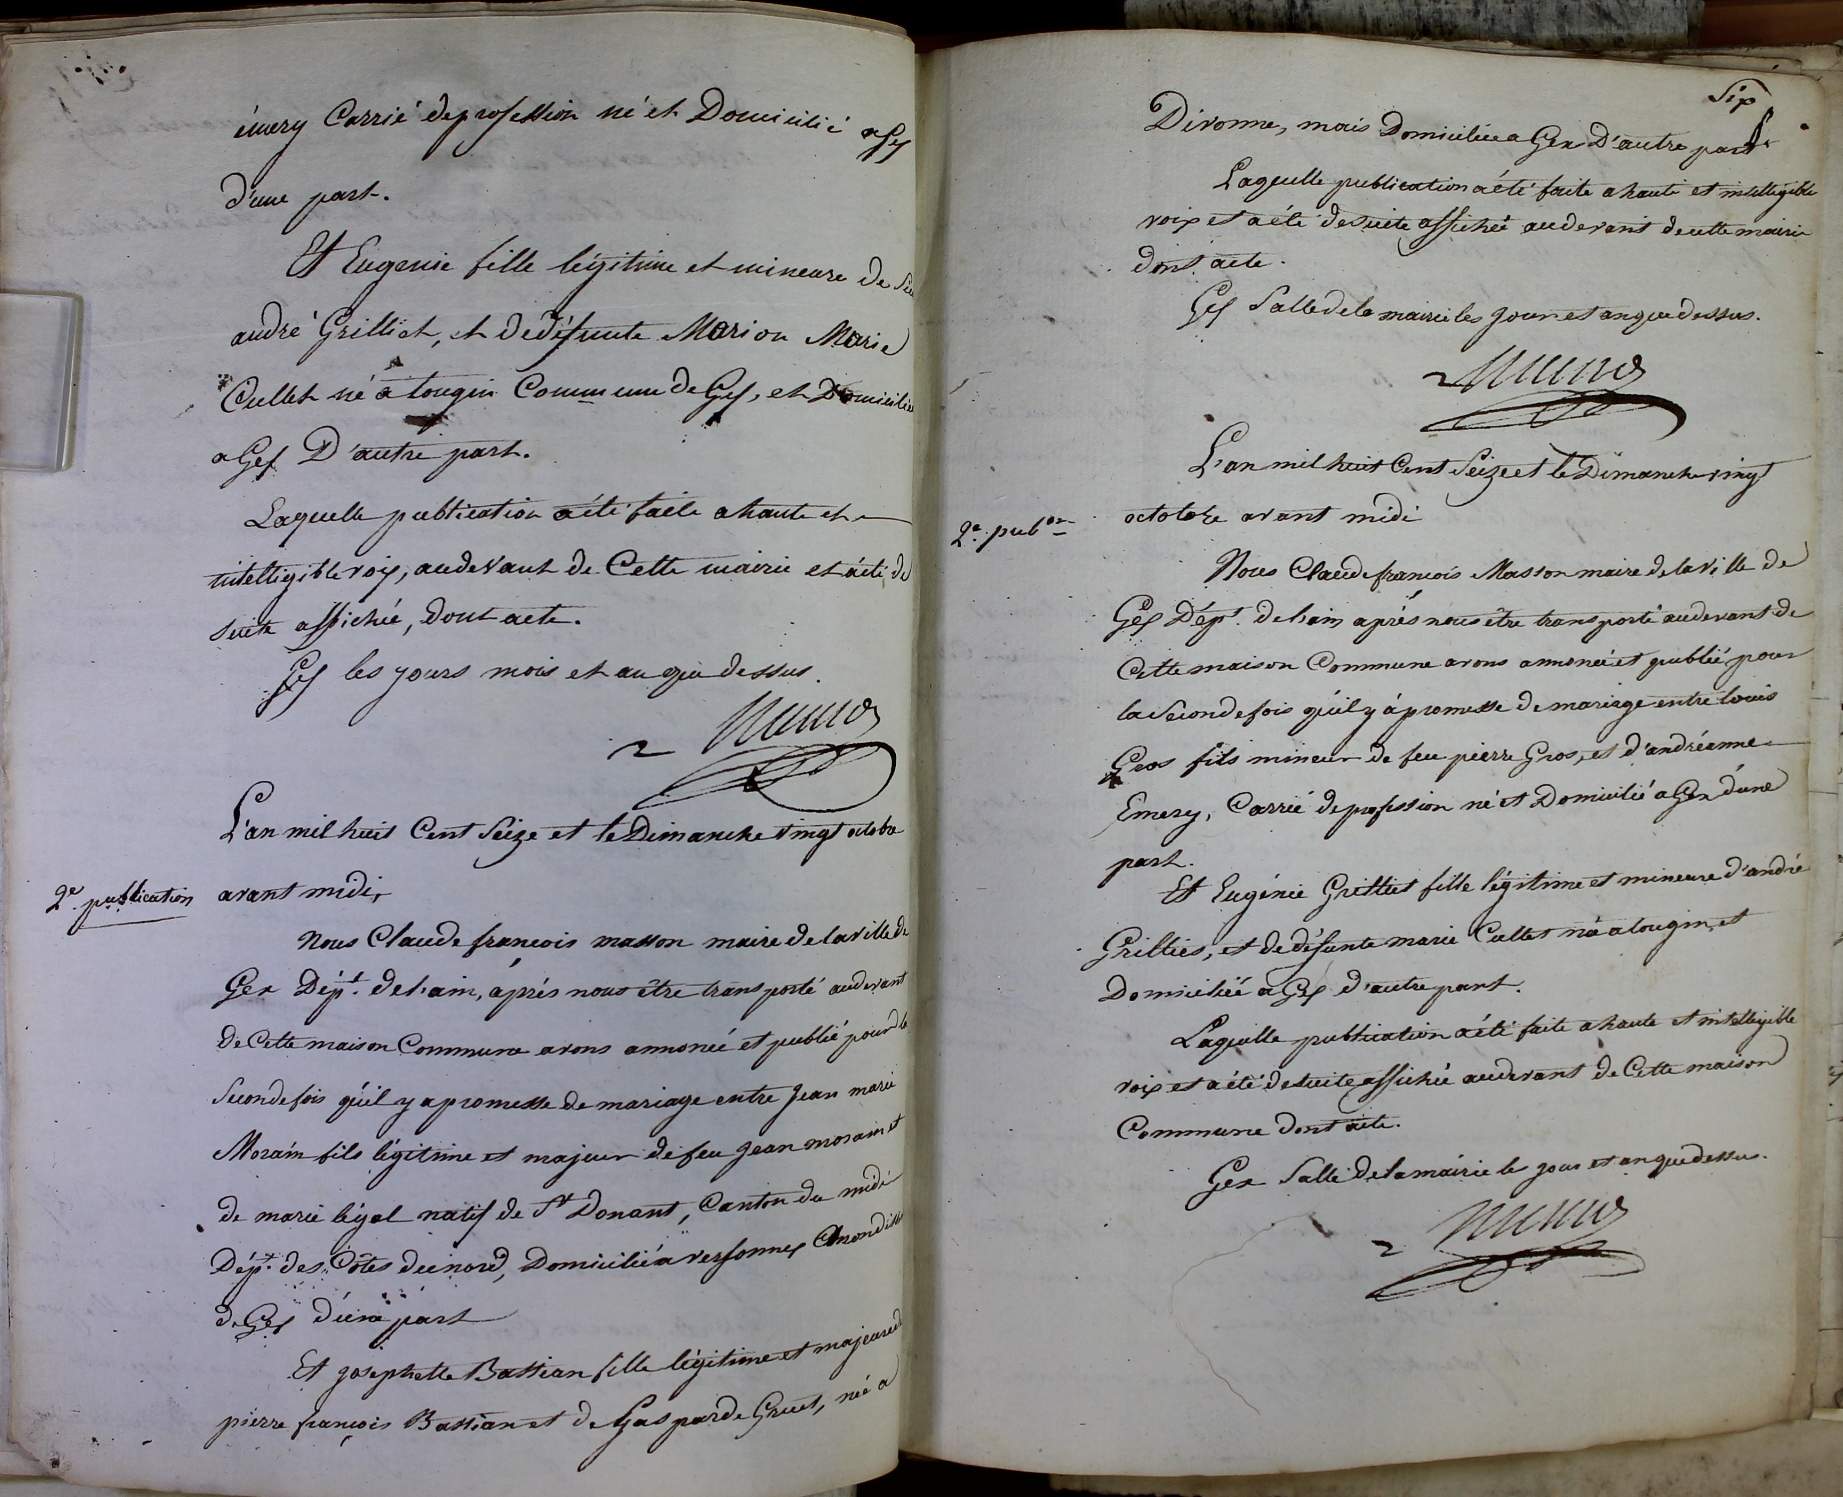 émery Carrié de profession né et Domicilié a Gex
d'une part.
Et Eugenie fille légitime et mineure de Sieur
andré Grilliet, et de défunte Marion Marie
Cullet né a tougin Commune de Gex, et Domiciliée
a Gex D'autre part.
Laquelle publication a été faite a haute et
intelligible voix, audevant de Cette mairie et a été de
suite affichée, dont acte.
Gex les jours mois et an que dessus.
L'an mil huit Cent Seize et le Dimanche vingt octobre
2e. publication
avant midi,
Nous Claude françois masson maire de la ville de
Gex Dépt. de l'ain, aprés nous être transporté audevant
de Cette maison Commune avons annoncé et publié pour la
Seconde fois qu'il y a promesse de mariage entre Jean marie
Morain fils légitime et majeur de feu Jean morain et
de marie légal natif de St Donant, Canton du midi
Dépt. des Côtes du nord, Domicilié a versonnex Canon dit
de Gex d'une part
Et josephette Bastian fille légitime et majeure de
pierre françois Bastian et de Gasparde Gruet, née a
Six
Divonne, mais Domiciliée a Gex D'autre part
Laquelle publication a été faite a haute et intelligible
voix et a été de suite affichée audevant de cette mairie
dont acte.
Gex Salle de la mairie les jour et an que dessus.
L'an mil huit Cent Seize et le Dimanche vingt
2e. pubon
octobre avant midi
Nous Claude françois Masson maire de la ville de
Gex Dépt. de l'ain aprés nous être transporté audevant de
Cette maison Commune avons annoncé et publié pour
la Seconde fois qu'il y á promesse de mariage entre louis
Gros fils mineur de feu pierre Gros, et d'andréanne
Emery, Carrié de profession né et Domicilié a Gex d'une
part.
Et Eugénie Grilliet fille légitime et mineure d'andré
Grilliet, et de défunte marie Cullet née a tougin, et
Domiciliée a Gex d'autre part.
Laquelle publication a été faite a haute et intelligible
voix et a été de suite affichée audevant de Cette maison
Commune dont acte.
Gex Salle de la mairie les jour et an que dessus.